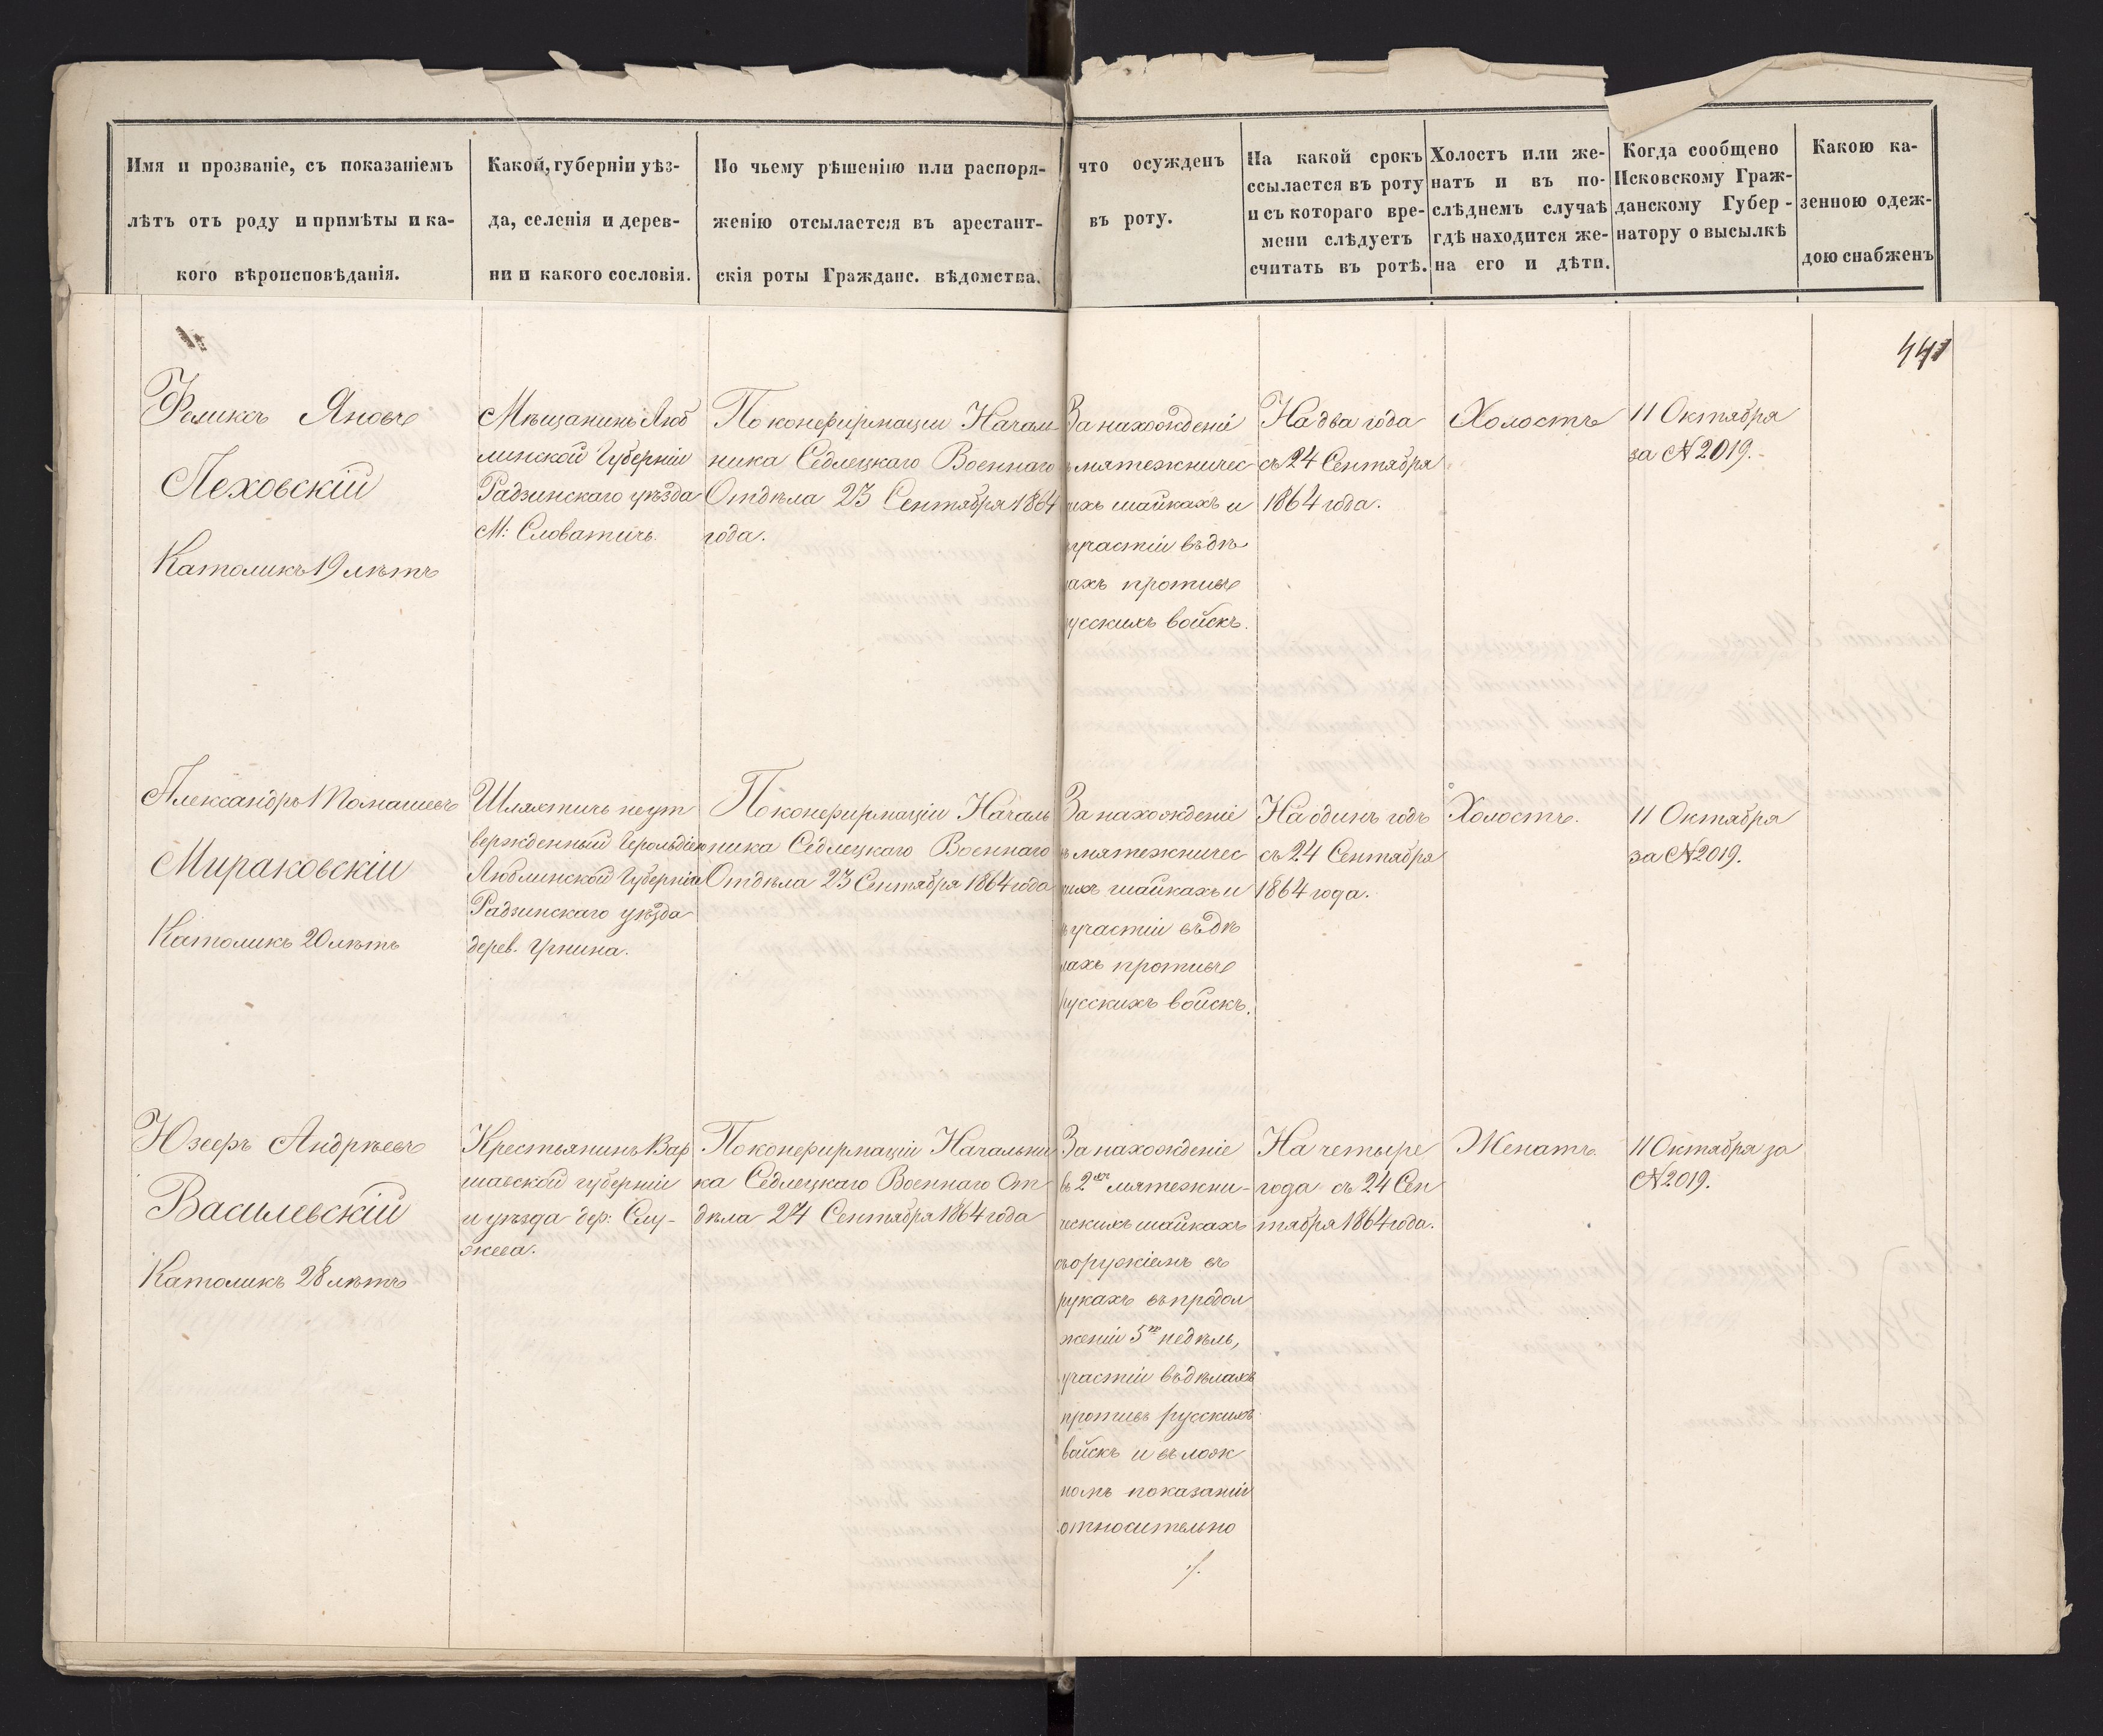 Имя и прозваніе, съ показаніемъ
лѣтъ отъ роду и примѣты и ка-
кого вѣроисповѣданія.
Какой, губерніи уѣз-
да, селенія и дерев-
ни и какого сословія.
По чьему рѣшенію или распоря-
женію отсылается въ арестант-
скія роты Гражданс. вѣдомства.
что осужденъ
въ роту.
На какой срокъ
ссылается въ роту
и съ котораго вре-
мени слѣдуетъ
считать въ ротѣ.
Холостъ или же-
натъ и въ по-
слѣднемъ случаѣ
гдѣ находится же-
на его и дѣти.
Когда сообщено
Псковскому Граж-
данскому Губер-
натору о высылкѣ
Какою ка-
зенною одеж-
дою снабженъ
441
Феликсъ Яновъ
Леховскій
Католикъ 19 лѣтъ
Мѣщанинъ Люб
линской Губерніи
Радзинскаго уѣзда
М: Словатичь.
По конфирмаціи Началь-
ника Седлецкаго Военнаго
Отдѣла 23 Сентября 1864
года.
За нахожденіи
мятежничес
ихъ шайкахъ и
участіи въ дѣ
ахъ противъ
усскихъ войскъ.
На два года
съ 24 Сентября
1864 года.
Холостъ
11 Октября
за № 2019.
Александръ Томашевъ
Мираковскій
Католикъ 20 лѣтъ
Шляхтичь неут
вержденный Герольдіею
Люблинской Губерніи
Радзинскаго уѣзда
дерев.
По конфирмаціи Началь
ника Седлецкаго Военнаго
Отдѣла 23 Сентября 1864 года
За нахожденіе
мятежничес
ихъ шайкахъ и
участіи въ дѣ
лахъ противъ
русскихъ войскъ.
На одинъ годъ
съ 24 Сентября
1864 года.
Холостъ.
11 Октября
за № 2019.
Юзефъ Андрѣевъ
Василевскій
Католикъ 28 лѣтъ
Крестьянинъ Вар
шавской губерніи
и уѣзда дер: Слу-
жева.
По конфирмаціи Начальни
ка Седлецкаго Военнаго От
дѣла 24 Сентября 1864 года
За нахожденіе
въ 2хъ мятежни-
ческихъ шайкахъ
съ оружіемъ въ
рукахъ въ продол
женіи 5ти недѣль,
участіи въ дѣлахъ
противъ русскихъ
войскъ и въ лож
номъ показаніи
относительно
./.
На четыре
года съ 24 Сен
тября 1864 года.
Женатъ.
11 Октября за
№ 2019.